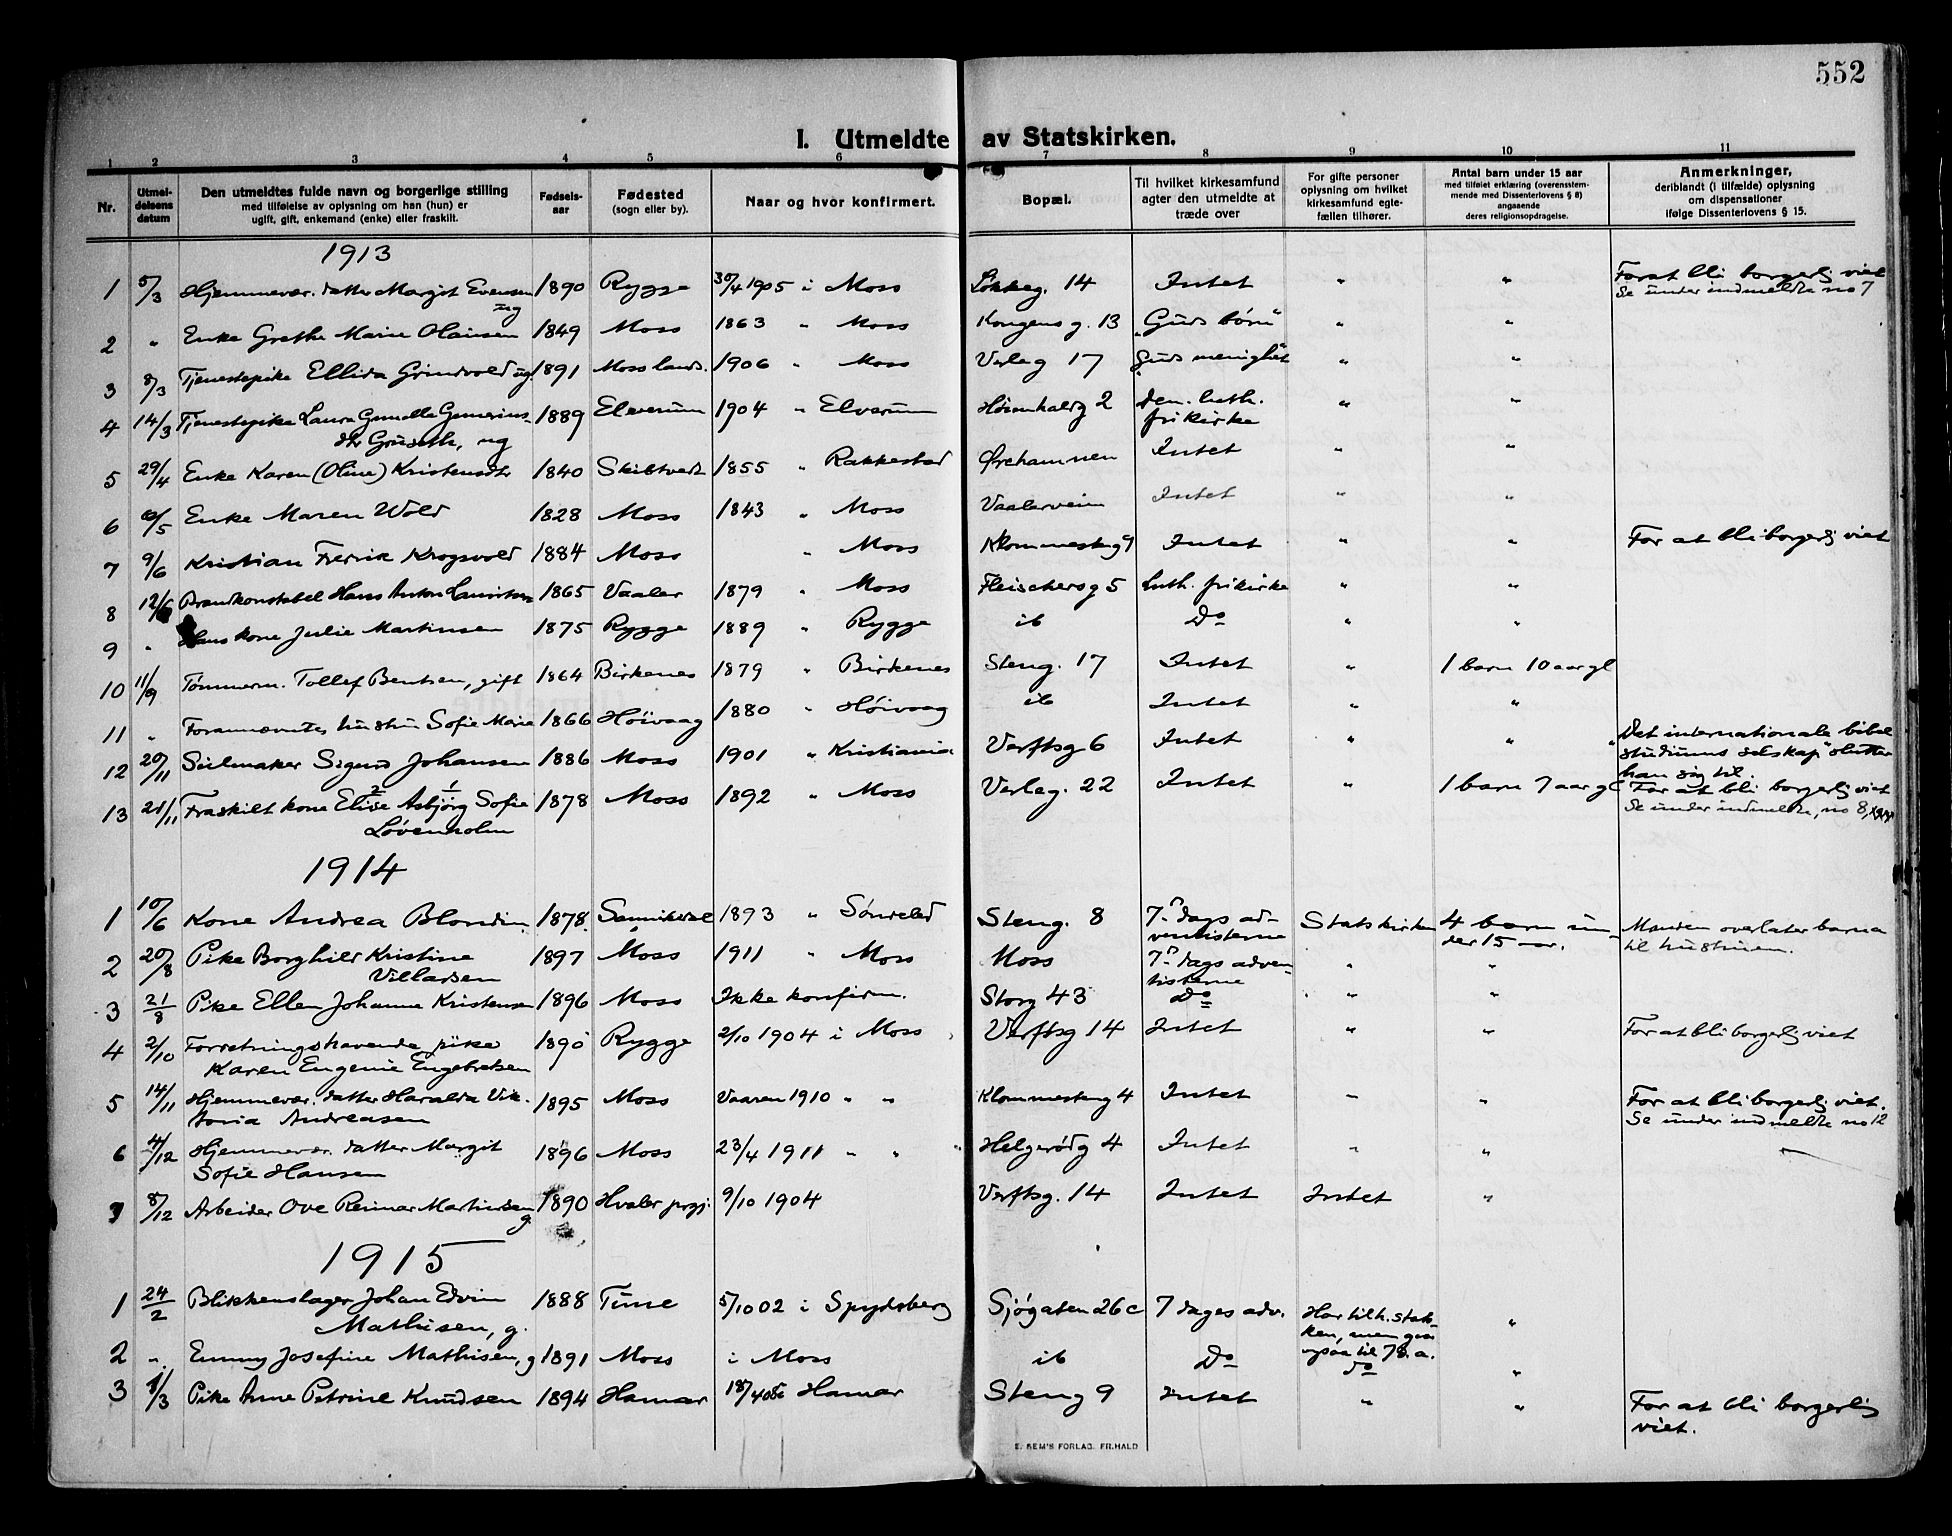 552
I. Utmeldte av Statskirken.
1 2 3 4 5 6 7 8 9 10 11
Nr.
Utmel-
delsens
datum
Den utmeldtes fulde navn og borgerlige stilling
med tilføielse av oplysning om han (hun) er
ugift, gift, enkemand (enke) eller fraskilt.
Fødsels-
aar
Fødested
(sogn eller by).
Naar og hvor konfirmert.
Bopæl.
Til hvilket kirkesamfund
agter den utmeldte at
træde over
For gifte personer
oplysning om hvilket
kirkesamfund egte-
fællen tilhører.
Antal barn under 15 aar
med tilføiet erklæring (overensstem-
mende med Dissenterlovens § 8)
angaaende
deres religionsopdragelse.
Anmerkninger,
deriblandt (i tilfælde) oplysning
om dispensationer
ifølge Dissenterlovens § 15.
1913
1 5/3 Hjemmevær. datter Margit Evensen 1890 Rygge 30/4 1905 i Moss Løkkeg. 14 Intet " " For at bli borgerlig viet
ug Se under indmeldte no 7
2 " Enke Grethe Marie Olausen 1849 Moss 1863 " Moss Kongens g. 13 "Guds børn" " "
3 8/3 Tjenestepike Ellida Grindvold ug. 1891 Moss lands. 1906 " Moss Verleg 17 Guds menighet " "
4 14/3 Tjenestepike Laura Gunelle Gunerius- 1889 Elverum 1904 " Elverum 2 Den luth. " "
dtr Gruseth, ug frikirke
5 29/4 Enke Karen (Oline) Kristensdtr 1840 Skibtvedt 1855 " Rakkestad Ørehamnen Intet " "
6 /5 Enke Maren Wold 1828 Moss 1843 " Moss Vaalerveien Intet " "
7 9/6 Kristian Fredrik Krogsvold 1884 Moss " Moss Klommesteng 9 Intet " " For at bli borgerlig viet
8 12/6 Brandkonstabel Hans Anton Lauritsen 1865 Vaaler 1879 " Moss Fleischersg 5 Luth. frikirke " "
9 " Hans kone Julie Martinsen 1875 Rygge 1889 " Rygge ib Do " "
10 11/9 Tømmerm. Tollef Bentsen, gift 1864 Birkenes 1879 " Birkenes Steng. 17 Intet " 1 barn 10 aar gl
11 " Forannævntes hustru Sofie Marie 1866 Høivaag 1880 " Høivaag ib Intet " "
12 20/11 Seilmaker Sigurd Johansen 1886 Moss 1901 " Kristiania Verftsg 6 Intet " " "Det internationale bibel
studiums selskap" slutter
han sig til.
13 21/11 Fraskilt kone Elise Asbjørg Sofie 1878 Moss 1892 " Moss Verleg. 22 Intet " 1 barn 7 aar gl For at bli borgerlig viet
Løvenholm Se under indmeldte, no 8,
1914
1 10/6 Kone Andrea Blondin 1878. Sannikedal 1893 " Søndeled Steng. 8 7de dags ad- Statskirken 4 barn un- Manden overlater barna
ventisterne der 15 aar. til hustruen.
2 20/8 Pike Borghild Kristine 1897 Moss 1911 " Moss Moss 7de dags adven- " "
Villadsen tisterne
3 21/8 Pike Ellen Johanne Kristensen 1896 Moss Ikke konfirm. Storg 43 Do " "
4 2/10 Forretningshavende pike 1890 Rygge 2/10 1904 i Moss Verftsg 14 Intet " " For at bli borgerlig viet
Karen Eugenie Engebretsen
5 14/11 Hjemmevær. datter Haralda Vik- 1895 Moss Vaaren 1910 " " Klommesteng 4 Intet " " For at bli borgerlig viet.
toria Andreasen Se under indmeldte no 12
6 4/12 Hjemmevær. datter Margit 1896 Moss 23/4 1911 " " Helgerødg 4 Intet " "
Sofie Hansen
7 8/12 Arbeider Ove Reimar Martinsen 1890 Hvaler prgj. 9/10 1904 Verftsg. 14 Intet Intet "
g.
1915
1 24/2 Blikkenslager Johan Edvin 1888 Tune 5/10 02 i Spydeberg Sjøgaten 26c 7 dages adv. Har tilh. statsk- "
Mathisen, g. ken, men gaar
ogsaa til 7 d. a.
2 " Emmy Josefine Mathisen, g 1891 Moss i Moss ib Do do "
3 1/3 Pike Anne Petrine Knudsen 1894 Hamar Hamar Steng 9 Intet " " For at bli borgerlig
viet.
E. SEM'S FORLAG. FR.HALD